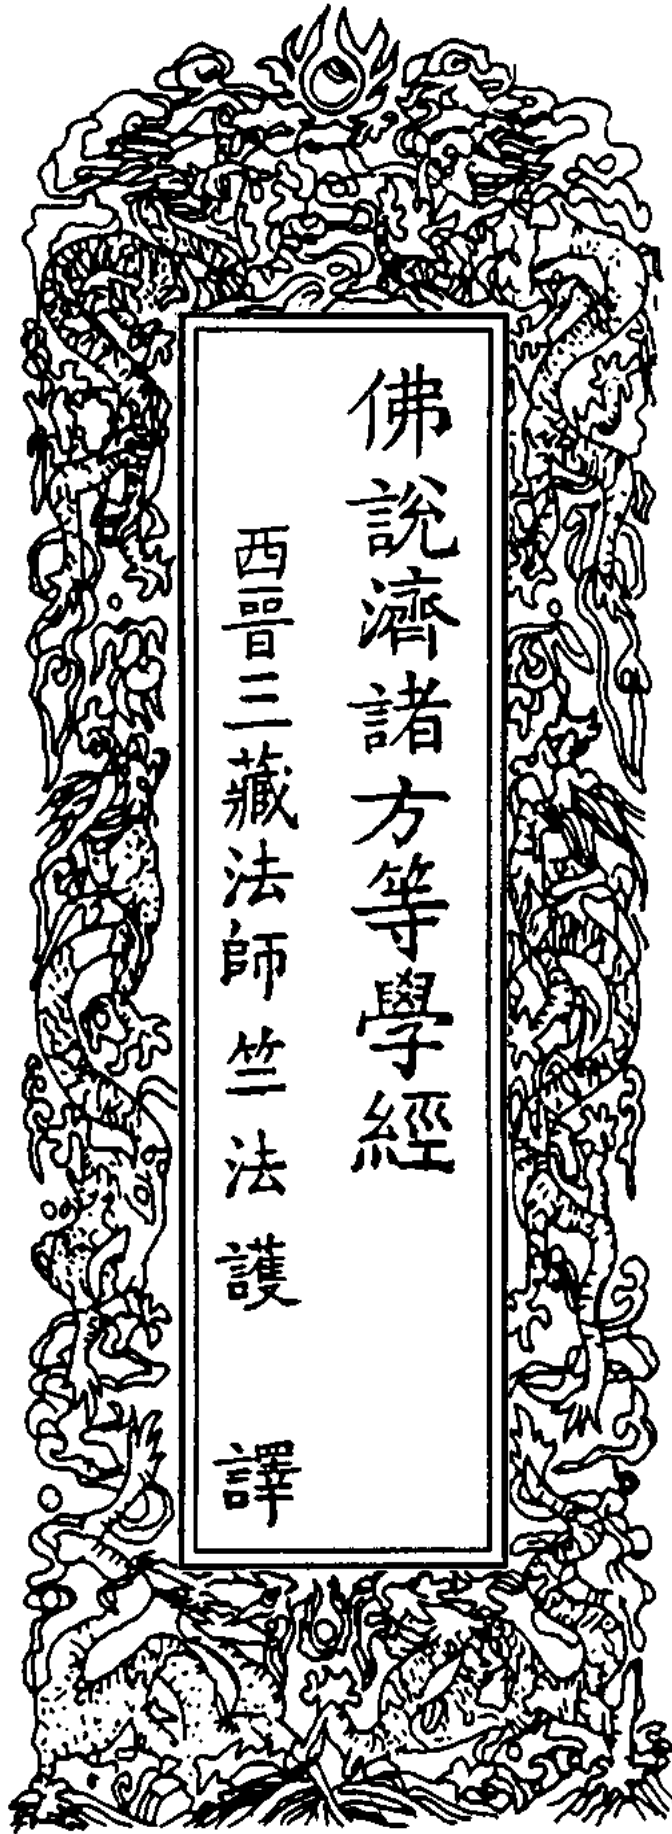 佛說濟諸方等學經
西晉三藏法師竺法護 譯